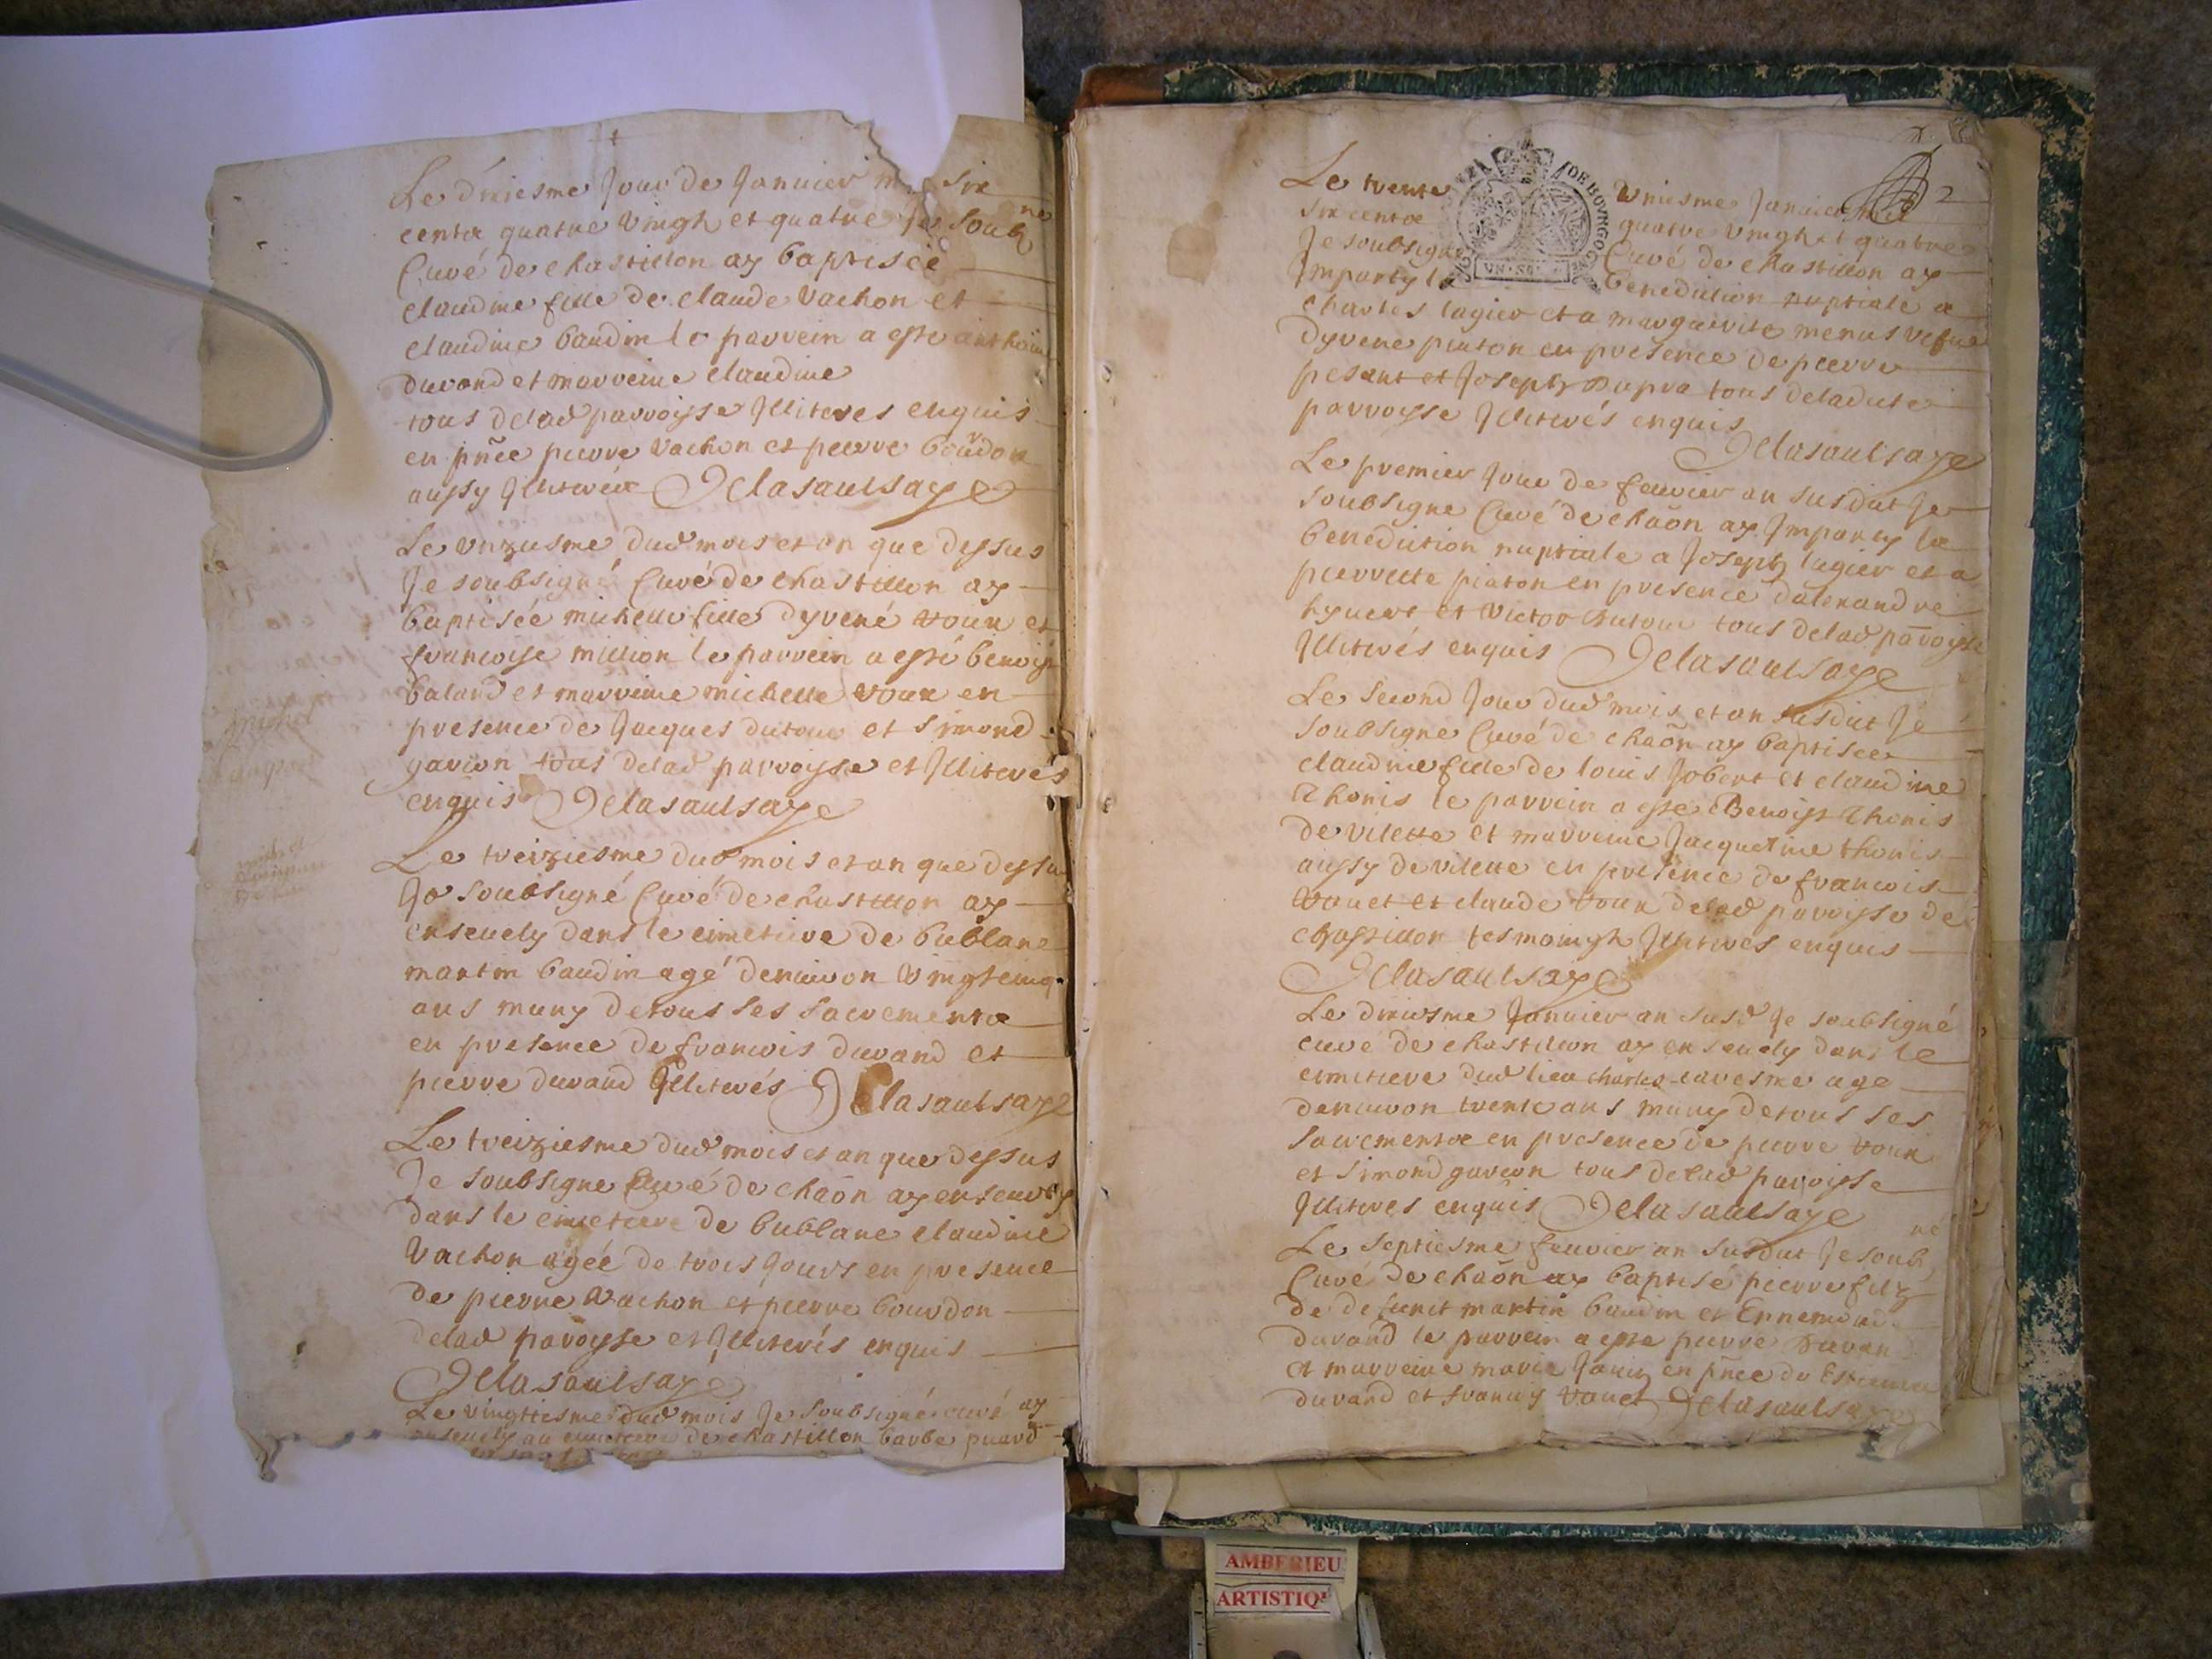 Le dixiesme Jour de Januier m six
centz quatre Vingh et quatre Je soub
ne
Curé de chastillon ay baptisée
claudine fille de claude Vachon et
claudine baudin le parrein a esté anthoine
durand et marreine claudine
tous delad parroisse Illiteres enquis
en pñce pierre Vachon et pierre bourdon
aussy Illiteréz Delasaulsaye
Le Unziesme dud mois et an que dessus
Je soubsigné Curé de chastillon ay
baptisée michelle fille dyvené voux et
francoise million le parrein a esté benoist
baland et marreine michelle voux en
presence de Jacques dutour et simond
garcon tous delad parroysse et Illiterés
enquis Delasaulsaye
Le treiziesme dud mois et an que dessus
Je soubsigné Curé de chastillon ay
enseuely dans le cimetiere de bublane
martin baudin agé denuiron Vingtcinq
ans muny detous ses sacrementz
en presence de francois durand et
pierre durand Illiterés Delasaulsaye
Le treiziesme dud mois et an que dessus
Je soubsigne Curé de chaõn ay enseuely
dans le cimetiere de bublane claudine
Vachon agée de trois Jours en presence
de pierre Vachon et pierre bourdon
delad paroysse et Illiterés enquis
Delasaulsaye
Le vingttiesme dud mois Je soubsigné curé ay
enseuely au cimetiere de chastillon barbe
Le trente Vniesme Januier mil
2
six centz quatre Vingh et quatre
Je soubsigné Curé de chastillon ay
Imparty la benediction nuptiale a
charles lagier et a marguerite menus vefue
dyvene piaton en presence de pierre
pesant et Joseph dupra tous deladite
parroysse Illiterés enquis
Delasaulsaye
Le premier Jour de feurier an susdit Je
soubsigne Curé de chaõn ay Imparty la
benediction nuptiale a Joseph lagier et a
pierrette piaton en presence dalexandre
hyuert et Victor dutour tous delad parroysse
Illiterés enquis Delasaulsaye
Le second Jour dud mois et an susdit Je
soubsigne Curé de chaõn ay baptisée
claudine fille de louis Jobert et claudine
thonis le parrein a esté Benoist thonis
de vilette et marreine Jacquetine thonis
aussy de vilette en presence de francois
Vouet et claude voux delad paroysse de
chastillon tesmoingh Illiteres enquis
Delasaulsaye
Le dixiesme Januier an susd Je soubsigné
curé de chastillon ay enseuely dans le
cimetiere dud lieu charles caresme age
denuiron trente ans muny detous ses
sacrementz en presence de pierre voux
et simond garcon tous delad paroisse
Illiteres enquis Delasaulsaye
Le septiesme feurier an susdit Je soub
né
Curé de chaõn ay baptisé pierre filz
de defunct martin baudin et Ennemond
durand le parrein a esté pierre Duran
et marreine marie Janin en pñce de Estienne
durand et francoys vouet Delasaulsaye
DE BOVRGO
VN·SOL
AMBERIEU
ARTISTIQ